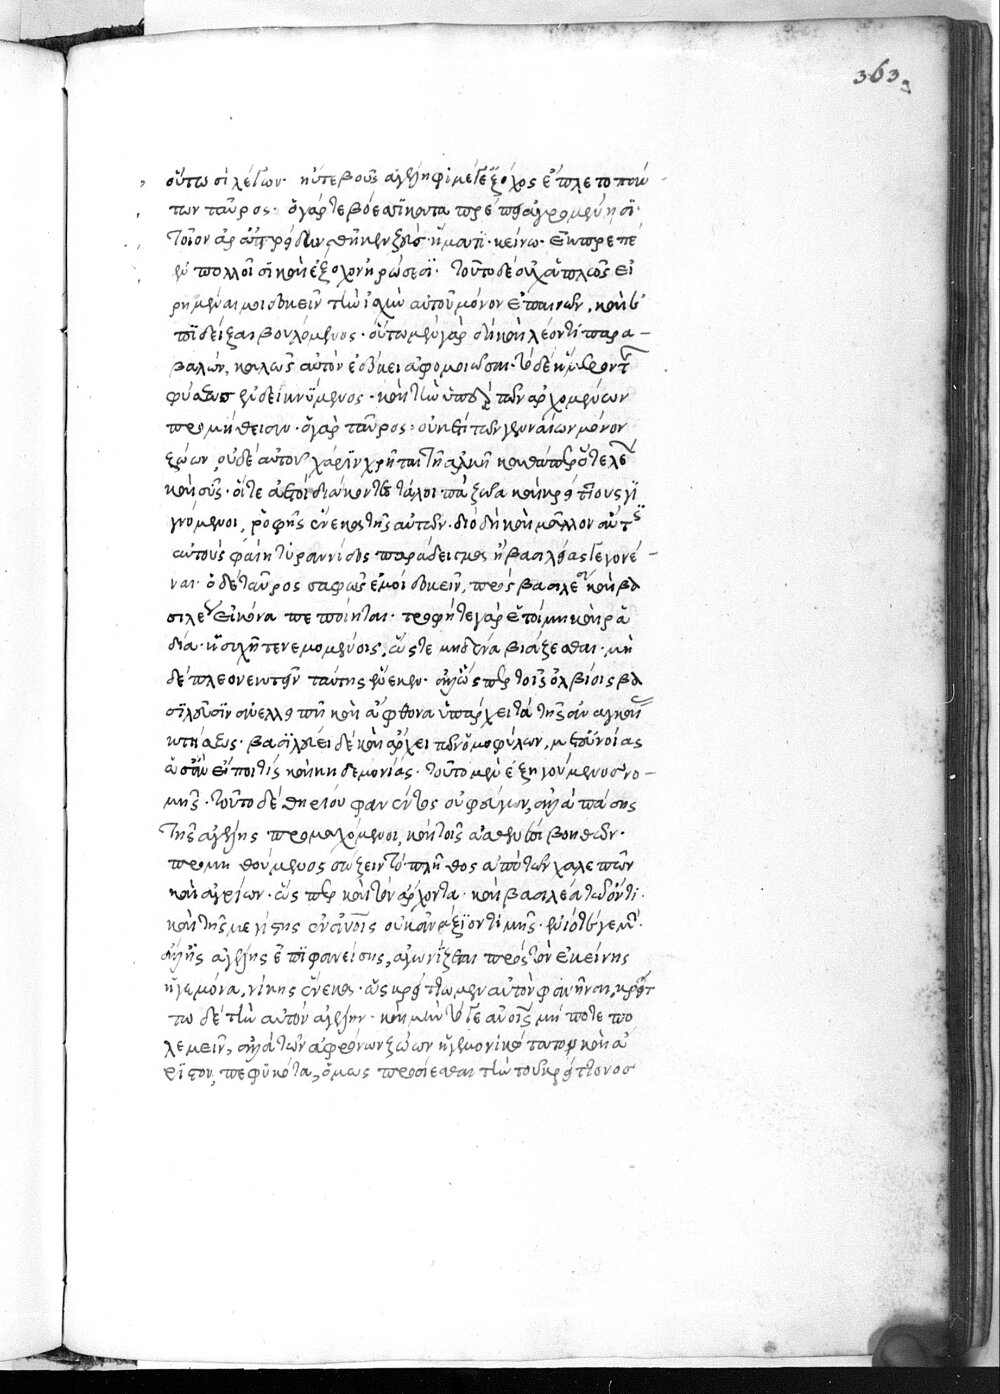 363
οὕτωσὶ λέγων· ἠΰτε βοῦς ἀγέληφι μέγ' ἔξοχος ἔπλετο πάν
των ταῦρος· ὁ γάρ τε βόεσσι μεταπρέπει ἀγρομένῃσι·
τοῖον ἄρ' ἀτρείδην θῆκεν ζεὺς ἤματι κείνω· ἐκπρεπέ
ἐν πολλοῖσι καὶ ἔξοχον ἡρώεσσι· τοῦτο δὲ οὐχ ἁπλῶς εἴ
ρηκεν ἐμοὶ δοκεῖν τὴν ἰσχὺν αὐτοῦ μόνον ἐπαινῶν, καὶ
ἐπιδεῖξαι βουλόμενος· οὕτω μὲν γὰρ δὴ καὶ λέοντι παρα
βαλὼν, καλῶς αὐτὸν ἐδόκει ἀφομοιῶσαι· τὸ δὲ ἥμερον τῆς
φύσεως ἐνδεικνύμενος· καὶ τὴν ὑπὲρ τῶν ἀρχομένων
προμήθειαν· ὁ γὰρ ταῦρος· οὐκ ἔστι τῶν γενναίων μόνον
ζώων, οὐδὲ αὐτοῦ χάριν χρῆται τῇ ἀλκῇ καθάπερ ὅ τε λέων
καὶ σῦς· οἵ τε ἀετοὶ διώκοντες τἄλλα ζῶα καὶ κρείττους γι
γνόμενοι, τροφῆς ἕνεκα τῆς αὐτῶν· διὸ δὴ καὶ μᾶλλον ἄν τις
αὐτοὺς φαίη τυραννίδος παράδειγμα ἢ βασιλείας γεγονέ
ναι· ὁ δὲ ταῦρος σαφῶς ἐμοὶ δοκεῖν, πρὸς βασιλέων καὶ βα
σιλέως εἰκόνα πεποίηται· τροφῇ τε γὰρ ἑτοίμη καὶ ῥα
δία· ἡσυχῇ τε νεμομένοις, ὥστε μηδένα βιάζεσθαι· μη
δὲ πλεονεκτεῖν ταύτης ἕνεκεν· ἀλλ' ὥσπερ τοῖς ὀλβίοις βα
σιλεῦσιν ἀνελλιπῆ καὶ ἄφθονα ὑπάρχει τὰ τῆς ἀναγκαίας
κτήσεως· βασιλεύει δὲ καὶ ἄρχει τῶν ὁμοφύλων, μετ' εὐνοίας
ὡς ἂν εἴποι τις καὶ κηδεμονίας· τοῦτο μὲν ἐξηγούμενος νο
μῆς· τοῦτο δὲ θηρίου φανέντος οὐ φεύγων, ἀλλὰ πάσης
τῆς ἀγέλης προμαχόμενος, καὶ τοῖς ἀσθενέσι βοηθῶν·
προμηθούμενος σώζειν τὸ πλῆθος ἀπὸ τῶν χαλεπῶν
καὶ ἀγρίων· ὥσπερ καὶ τὸν ἄρχοντα· καὶ βασιλέα τῷ ὄντι·
καὶ τῆς μεγίστης ἐν ἀνθρώποις οὐκ ἀνάξιον τιμῆς· ἐνίοτέ γε μὴν·
ἄλλης ἀγέλης ἐπιφανείσης, ἀγωνίζεται πρὸς τὸν ἐκείνης
ἡγεμόνα, νίκης ἕνεκα· ὡς κρείττω μὲν αὐτὸν φανῆναι, κρείτ
τω δὲ τὴν αὐτοῦ ἀγέλην· καὶ μὴν τό γε ἀνθρώποις μήποτε πο
λεμεῖν, ἀλλὰ τῶν ἀφρόνων ζώων ἡγεμονικώτατον καὶ ἄ
ριστον, πεφυκότα, ὅμως προσίεσθαι τὴν τοῦ κρείττονος